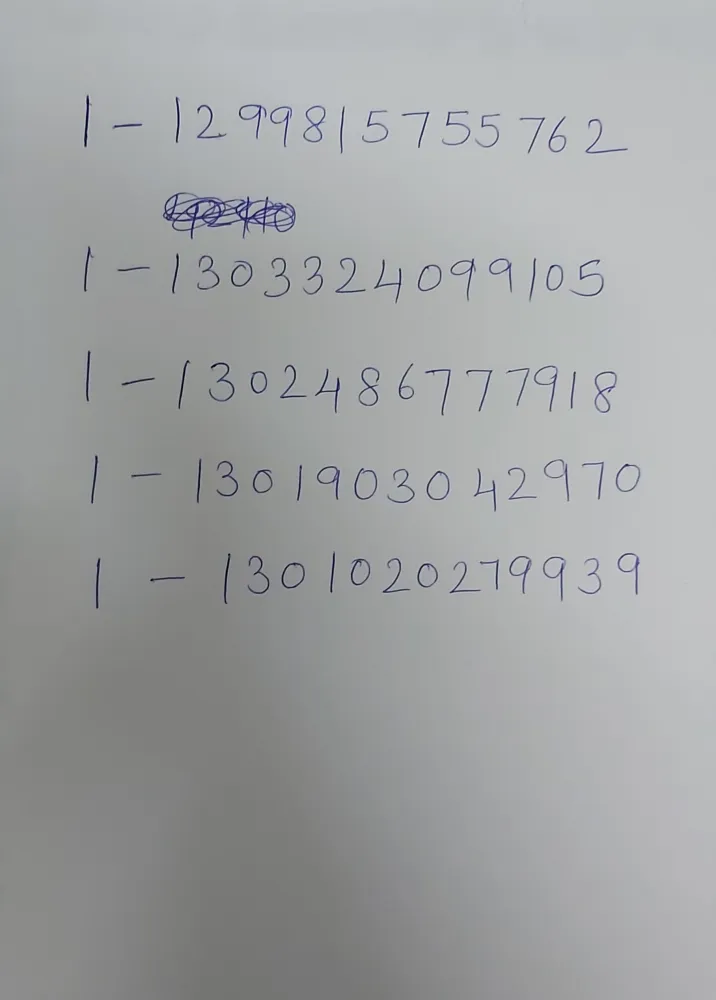 1 - 1299815755762
1 - 1303324099105
1 - 1302486777918
1 - 1301903042970
1 - 1301020279939